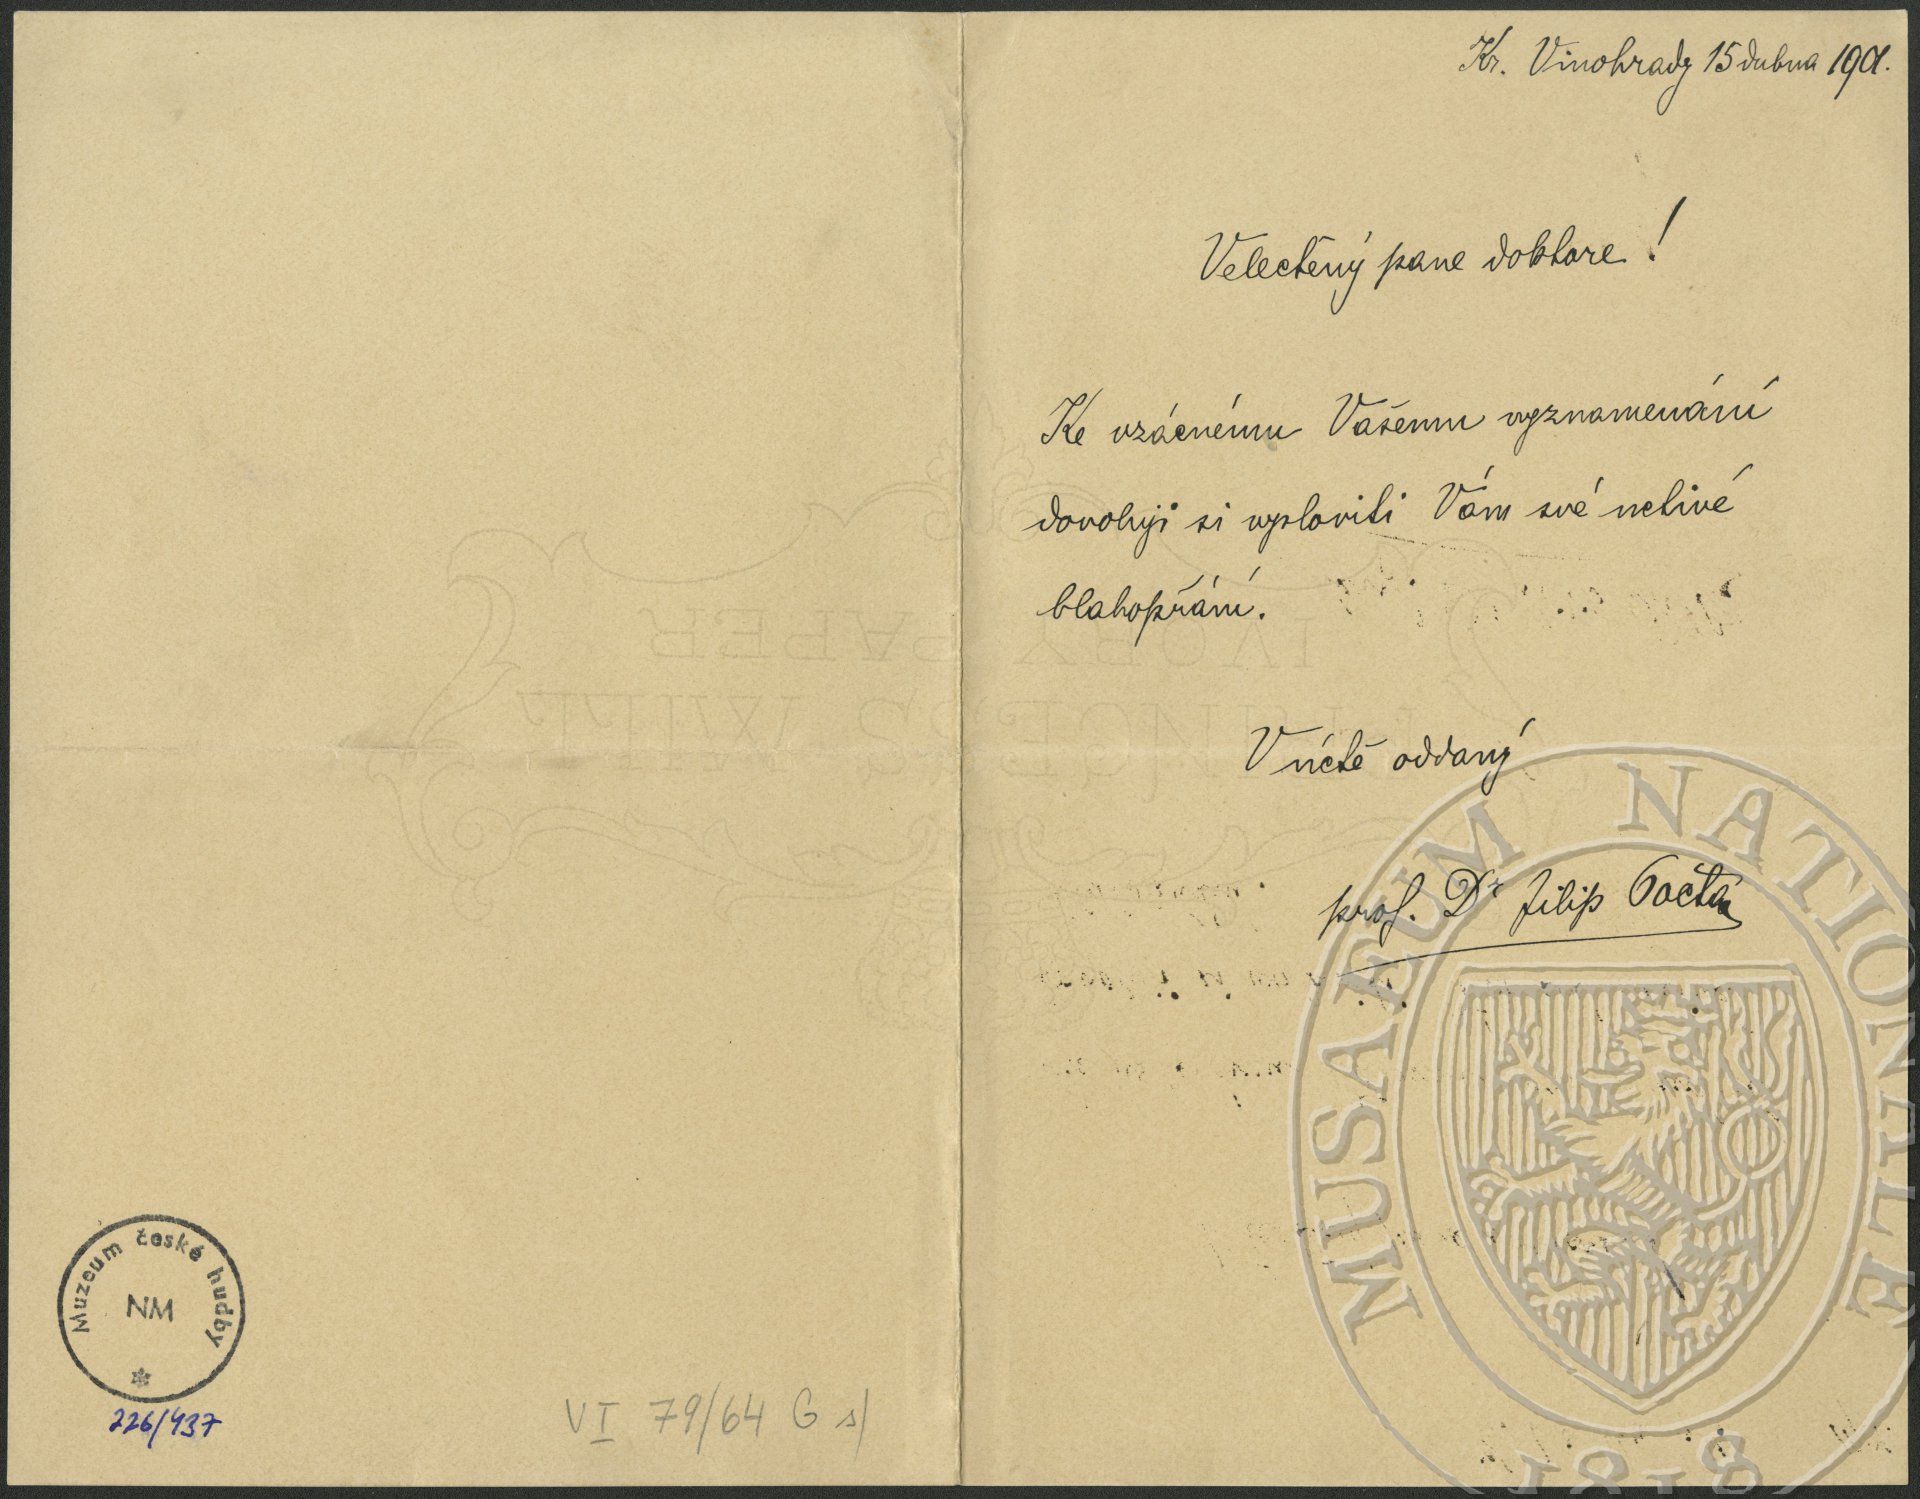 Kr. Vinohrady 15 dubna 1901.
Velectěný pane doktore!
Ke vzácnému Vašemu vyznamenání
dovoluji si vysloviti Vám své uctivé
blahopřání.
V úctě oddaný
prof. Dr Filip Počta
IVORY PAPER
PRINCESS MILL
MUSAEUM NATIONALE
1818
Muzeum české hudby
NM
226/437
VI 79/64 G s/